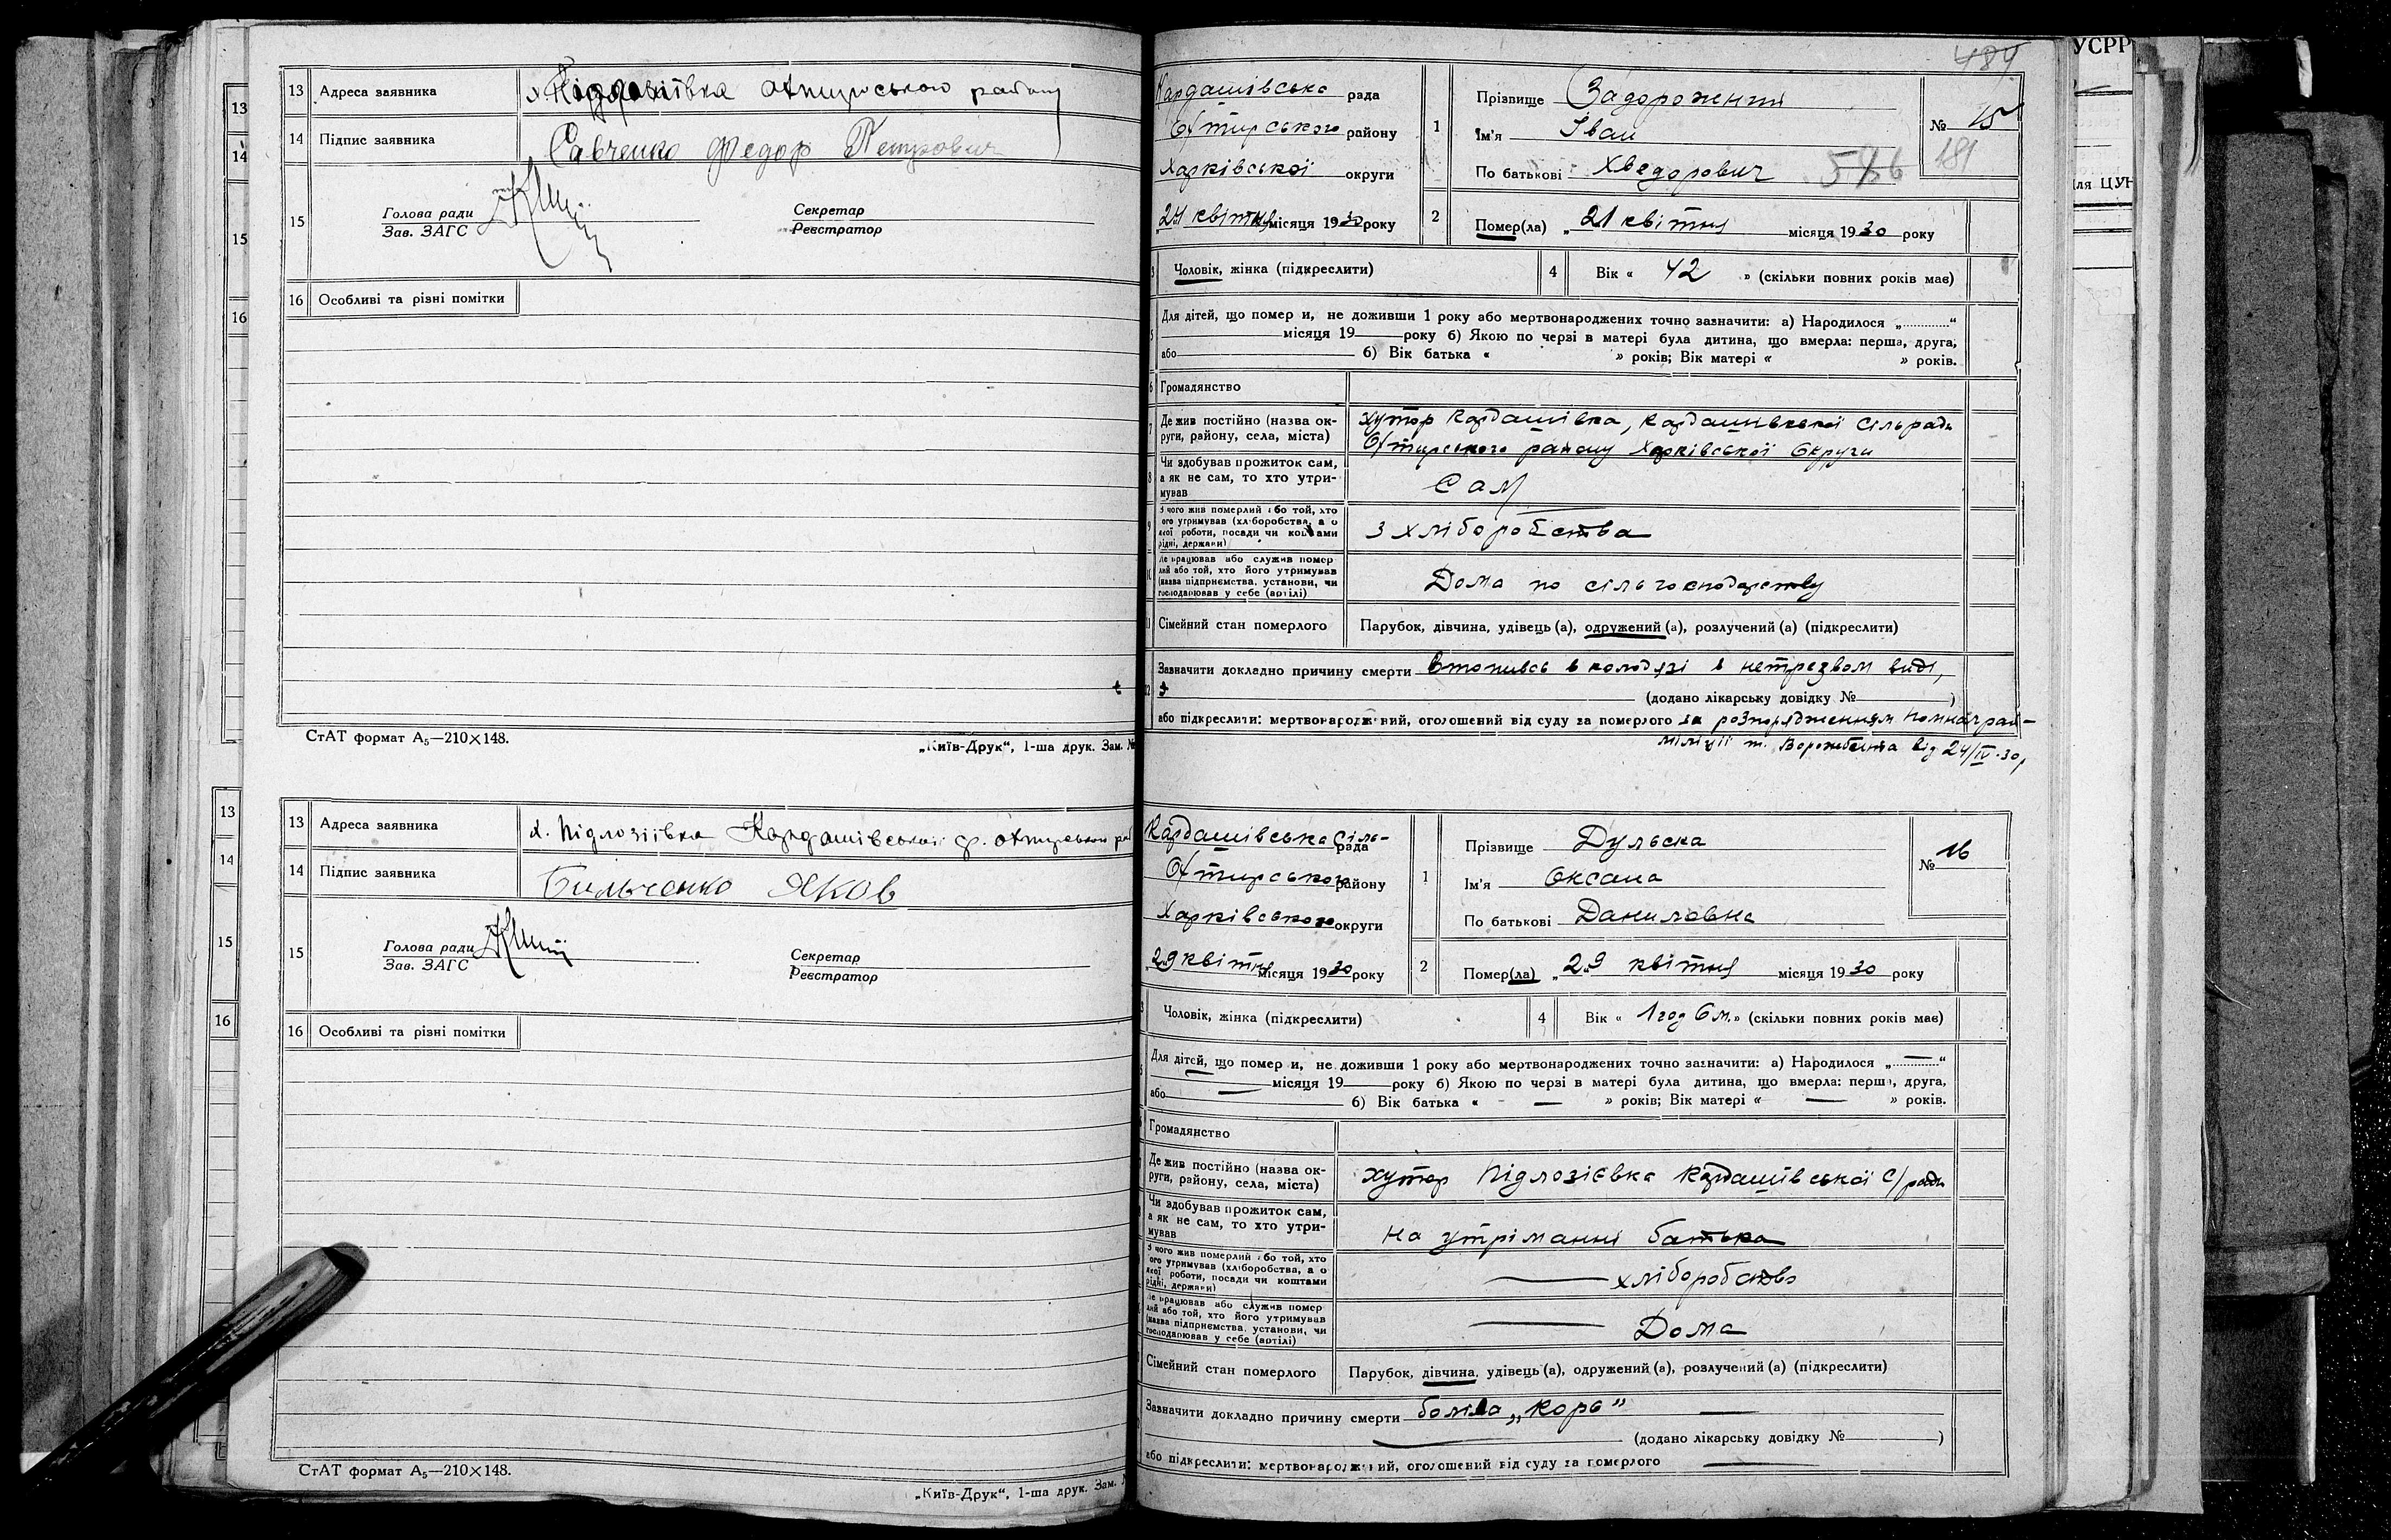 13 Адреса заявника
14 Підпис заявника Савченко Федор Петрович
15 Голова ради Секретар
Зав. ЗАГС Реєстратор
16 Особливі та різні помітки
СтАТ формат А₅—210×148.
„Київ-Друк“, 1-ша друк. Зам. №
13 Адреса заявника х. Підлозіївка Кардашівської ср. Охтирського
14 Підпис заявника Бильченко Яков
15 Голова ради Секретар
Зав. ЗАГС Реєстратор
16 Особливі та різні помітки
СтАТ формат А₅—210×148.
„Київ-Друк“, 1-ша друк. Зам.
13
14
15
16
13
14
15
16
484
Кардашівська рада
Охтирського району
Харківської округи
„24 квітня місяця 1930 року
1 Прізвище Задорожний
Ім'я Іван
По батькові Хведорович
586
№ 15
181
2 Помер(ла) „21 квітня місяця 1930 року
Чоловік, жінка (підкреслити) 4 Вік « 42 » (скільки повних років має)
Для дітей, що помер и, не доживши 1 року або мертвонароджених точно зазначити: а) Народилося „............“
місяця 19 року б) Якою по черзі в матері була дитина, що вмерла: перша, друга,
або б) Вік батька « » років; Вік матері « » років.
6 Громадянство
7 Де жив постійно (назва ок-
руги, району, села, міста)
хутор Кардашівка, Кардашивської сільради
Охтирського району Харківської Округи
8 Чи здобував прожиток сам,
а як не сам, то хто утри-
мував
Сам
9 З чого жив померлий або той, хто
ого утримував (хліборобства, а о
якої роботи, посади чи коштами
рідні, держави)
з хліборобства
10 Де працював або служив помер
лий або той, хто його утримував
(назва підприємства, установи, чи
господарював у себе (артілі)
Дома по сільгосподарству
11 Сімейний стан померлого Парубок, дівчина, удівець (а), одружений (а), розлучений (а) (підкреслити)
12 Зазначити докладно причину смерти Втопивсь в колодязі в нетрезвом виді,
(додано лікарську довідку № )
або підкреслити: мертвонароджений, оголошений від суду за померлого за розпорядженням Помначрай-
міліції т. Ворожбита від 24/IV-30,
Кардашівська Сіль-
рада
Охтирського району
Харківського округи
„29 квітня місяця 1930 року
1 Прізвище Дульска
Ім'я Оксана
По батькові Даниловна
№ 16
2 Помер(ла) „29 квітня місяця 1930 року
Чоловік, жінка (підкреслити) 4 Вік « 1 год 6 м. » (скільки повних років має)
Для дітей, що помер и, не доживши 1 року або мертвонароджених точно зазначити: а) Народилося „............“
місяця 19 року б) Якою по черзі в матері була дитина, що вмерла: перша, друга,
або б) Вік батька « — » років; Вік матері « — » років.
Громадянство
Де жив постійно (назва ок-
руги, району, села, міста)
хутор Підлозієвка Кардашівської с/ради
Чи здобував прожиток сам,
а як не сам, то хто утри-
мував
На утріманні батька
З чого жив померлий або той, хто
ого утримував (хліборобства, а о
якої роботи, посади чи коштами
рідні, держави)
— хліборобство
Де працював або служив помер
лий або той, хто його утримував
(назва підприємства, установи, чи
господарював у себе (артілі)
— Дома
Сімейний стан померлого Парубок, дівчина, удівець (а), одружений (а), розлучений (а) (підкреслити)
Зазначити докладно причину смерти боліла „Корь“ —
(додано лікарську довідку № )
або підкреслити: мертвонароджений, оголошений від суду за померлого —
УСРР
для ЦУН